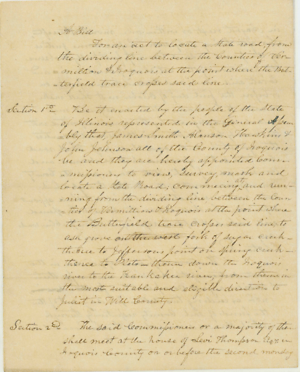 A Bill
For an act to locate a State road from
the dividing line between the Counties of Ver-
million & Iroquois at the point where the But-
terfield trace crosses said line.
Section 1st Be it enacted by the people of the State
of Illinois represented in the General Assem-
bly that, James Smith, Hunkins &
John Johnson all of the County of Iroquois
be and they are hereby appointed Com-
missioners to view, survey, mark and
locate a State Road, commencing and run-
ning from the dividing line between the Coun-
ties of Vermillion & Iroquois at the point where
the Butterfield trace crosses said line to
ash grove on the west fork of sugar creek
thence to point on spring creek
thence to Plato thence down the Iroquois
river to the Kankakee river, from thence in
the most suitable and eligible direction to
Juliet in Will County.
Section 2nd The said Commissioners or a majority of them
shall meet at the house of Levi Thompson Esqr in
Iroquois County on or before the second monday